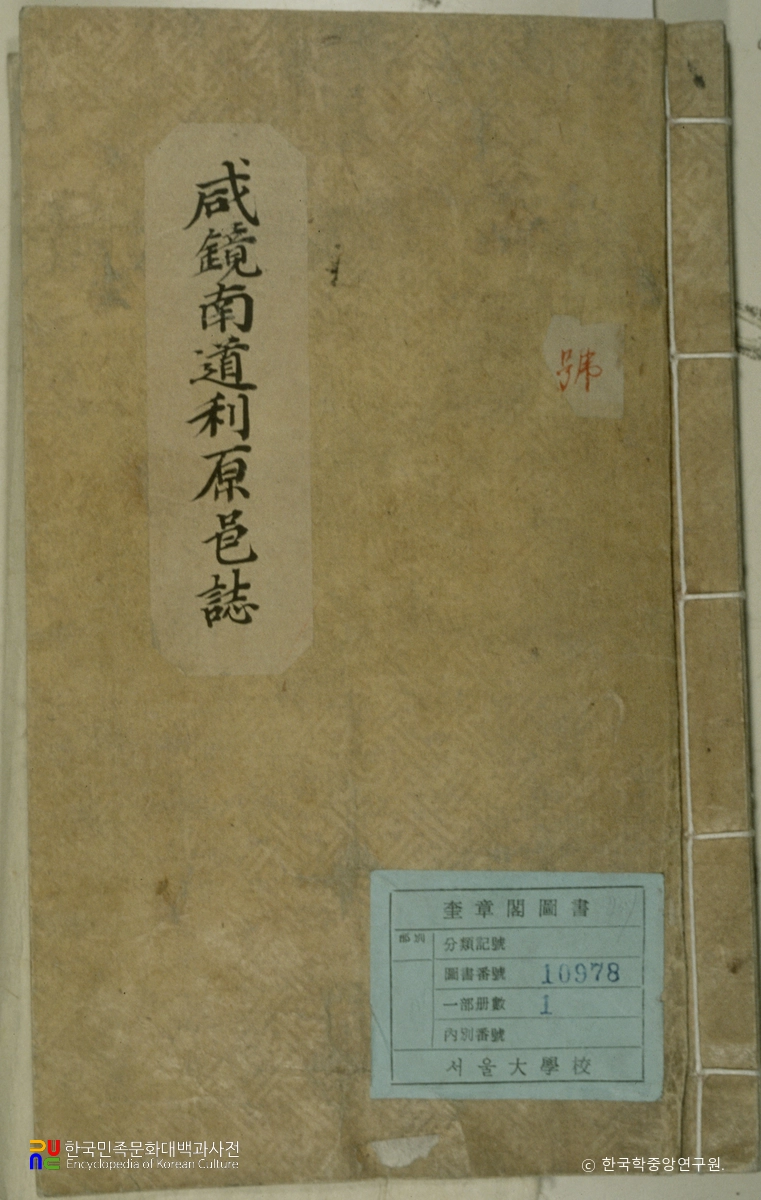 咸鏡南道利原邑誌
號
奎章閣圖書
部別
分類記號
圖書番號 10978
一部册數 1
內別番號
서울大學校
한국민족문화대백과사전
Encyclopedia of Korean Culture
© 한국학중앙연구원.